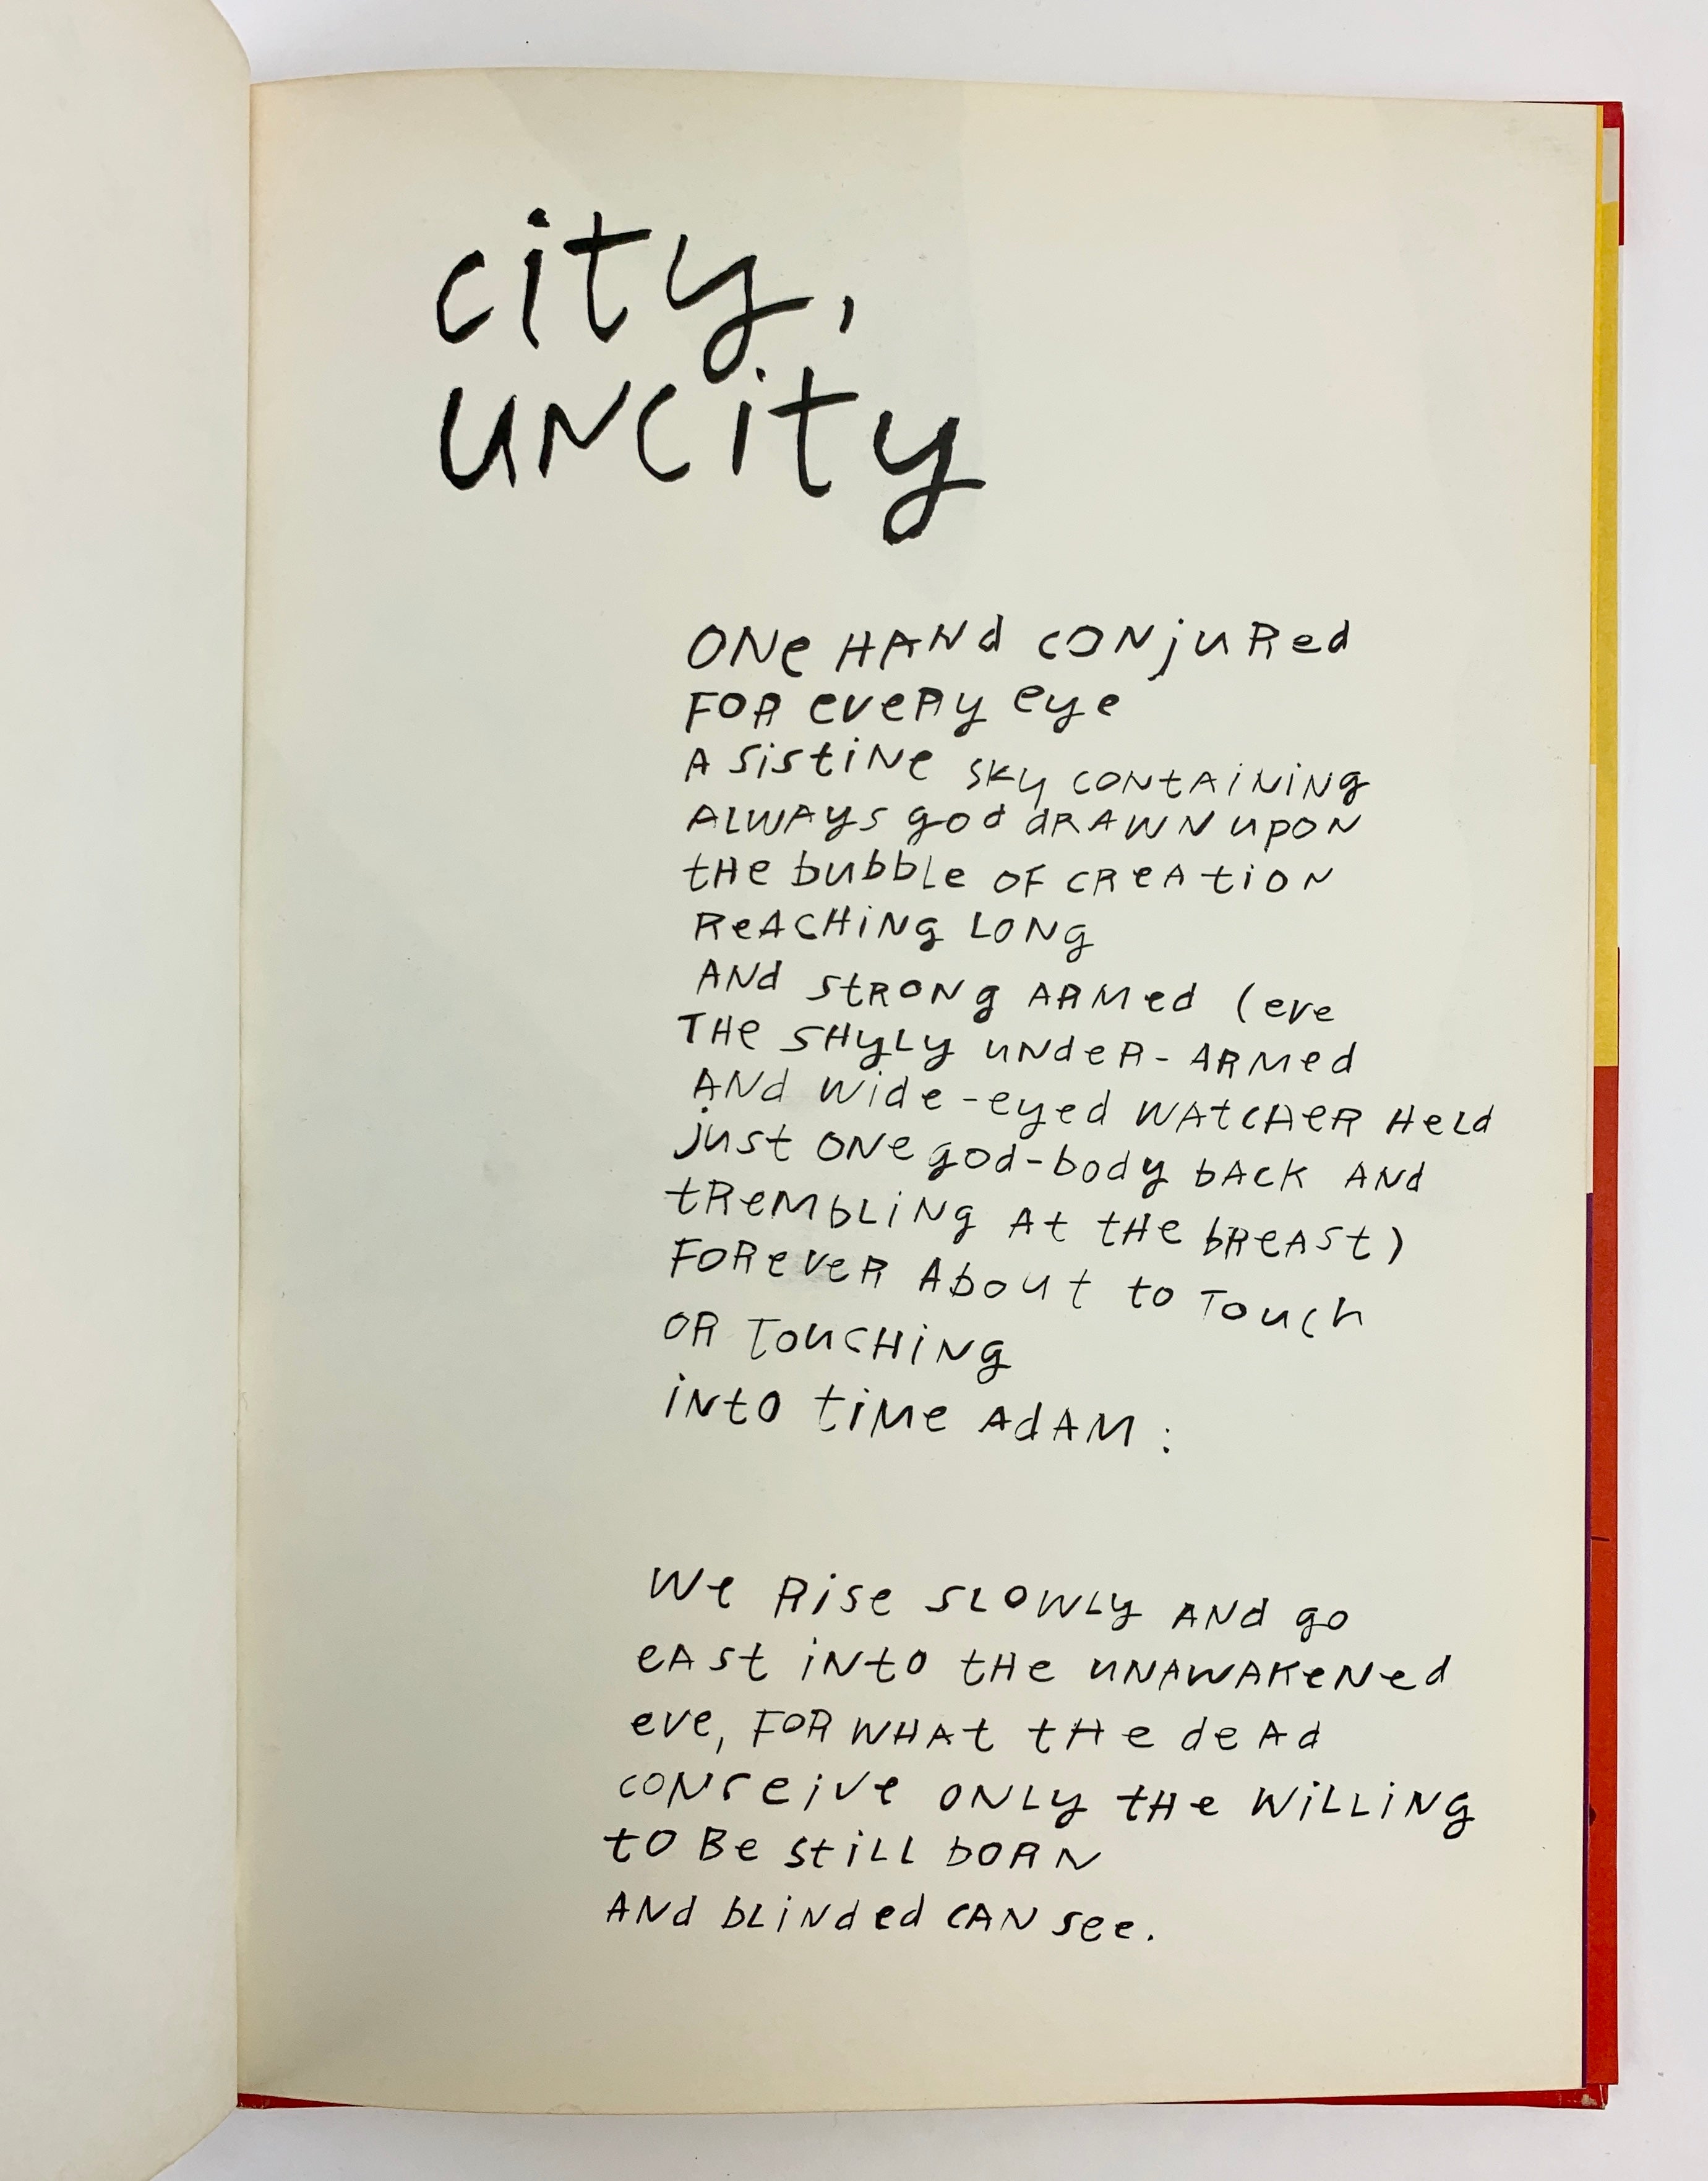 city,
uncity
ONe HANd CONjuRed
FOR eveRy eye
A SistiNe sky CONtAiNiNg
ALWAys god dRAWN upON
tHe bubbLe OF CReAtiON
ReACHiNg LONg
ANd stRONg ARMed (eve
THe SHyLy uNdeR-ARMed
ANd Wide-eyed WAtCHeR HeLd
just ONe god-body bACk ANd
tReMbLiNg At tHe bReASt)
FOReveR About to Touch
OR TouCHiNg
iNtO tiMe AdAM:
We Rise SLOWLy ANd go
eASt iNtO tHe uNAWAKeNed
eve, FOR WHAt tHe deAd
CONceive ONLy tHe WiLLiNg
tO Be StiLL bORN
ANd bLiNded CAN see.